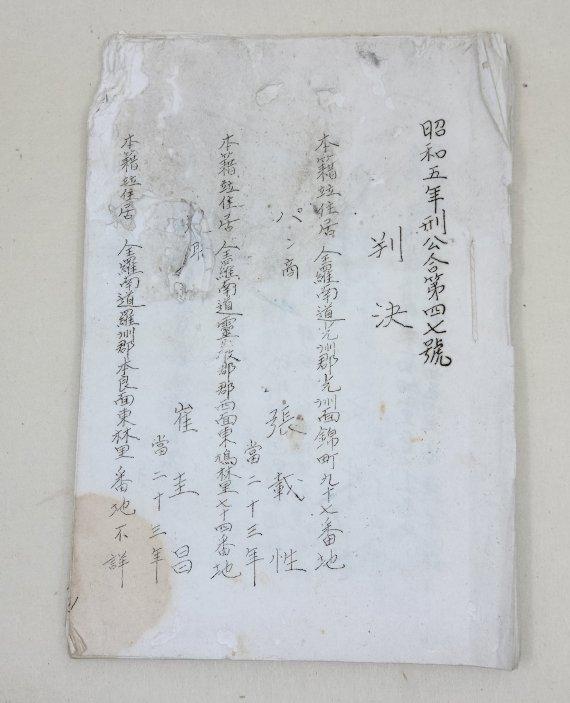 昭和五年刑公合第四七號
判決
本籍竝住居 全羅南道光州郡光州面錦町九十七番地
パン商
張載性
當二十三年
本籍竝住居 全羅南道靈巖郡郡西面東鳩林里七十四番地
崔圭昌
當二十三年
本籍竝住居 全羅南道羅州郡本良面東林里番地不詳